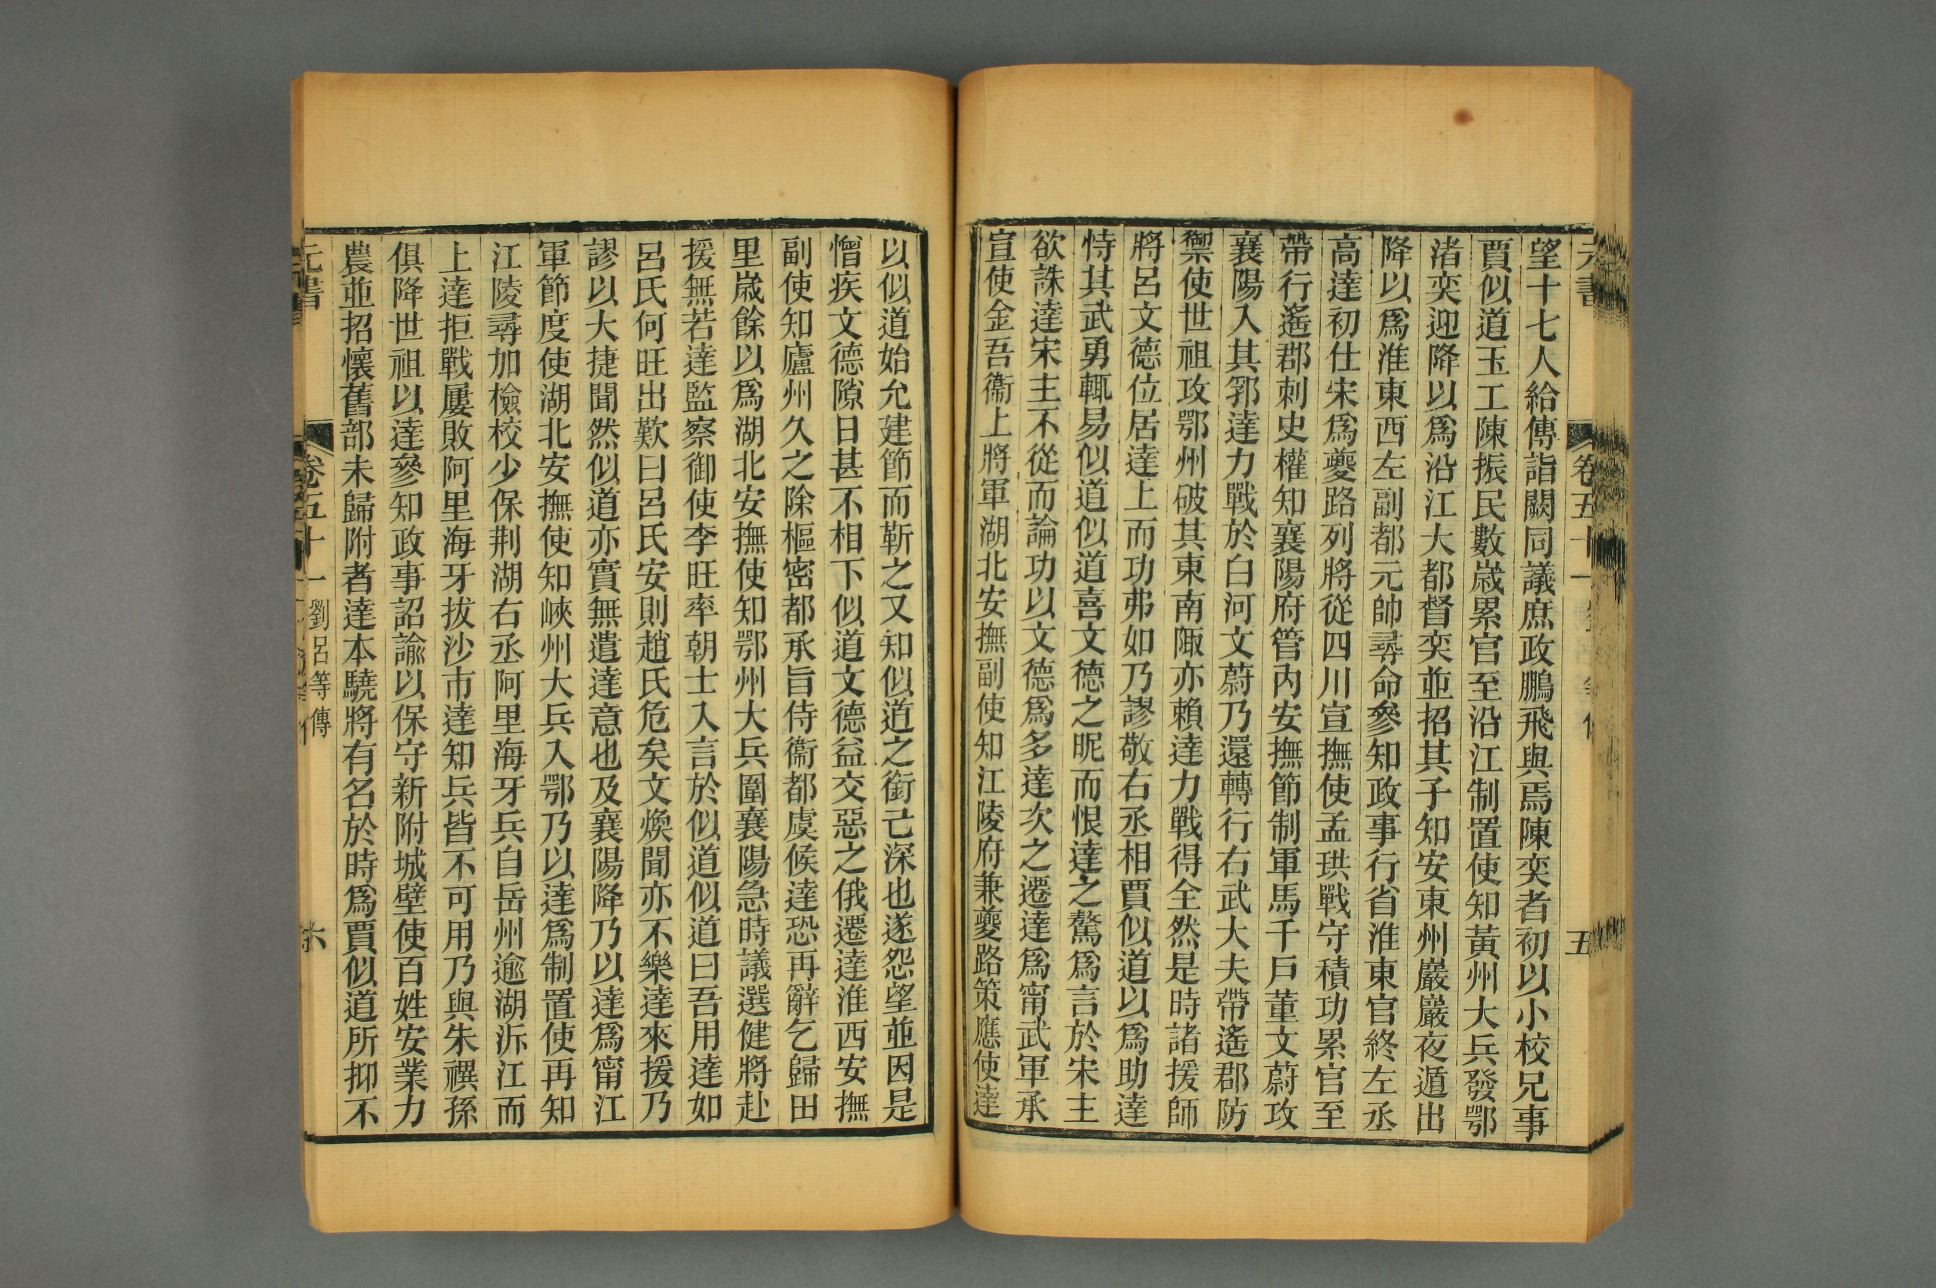 元書 卷五十一 五
望十七人給傳詣闕同議庶政鵬飛與焉陳奕者初以小校兄事
賈似道玉工陳振民數歲累官至沿江制置使知黃州大兵發鄂
渚奕迎降以爲沿江大都督奕並招其子知安東州巖巖夜遁出
降以爲淮東西左副都元帥尋命參知政事行省淮東官終左丞
高達初仕宋爲夔路列將從四川宣撫使孟珙戰守積功累官至
帶行遙郡刺史權知襄陽府管內安撫節制軍馬千戶董文蔚攻
襄陽入其郛達力戰於白河文蔚乃還轉行右武大夫帶遙郡防
禦使世祖攻鄂州破其東南陬亦賴達力戰得全然是時諸援師
將呂文德位居達上而功弗如乃謬敬右丞相賈似道以爲助達
恃其武勇輒易似道似道喜文德之昵而恨達之驁爲言於宋主
欲誅達宋主不從而論功以文德爲多達次之遷達爲甯武軍承
宣使金吾衞上將軍湖北安撫副使知江陵府兼夔路策應使達
以似道始允建節而靳之又知似道之銜己深也遂怨望並因是
憎疾文德隙日甚不相下似道文德益交惡之俄遷達淮西安撫
副使知廬州久之除樞密都承旨侍衞都虞候達恐再辭乞歸田
里歲餘以爲湖北安撫使知鄂州大兵圍襄陽急時議選健將赴
援無若達監察御使李旺率朝士入言於似道似道曰吾用達如
呂氏何旺出歎曰呂氏安則趙氏危矣文煥聞亦不樂達來援乃
謬以大捷聞然似道亦實無遣達意也及襄陽降乃以達爲甯江
軍節度使湖北安撫使知峽州大兵入鄂乃以達爲制置使再知
江陵尋加檢校少保荆湖右丞阿里海牙兵自岳州逾湖泝江而
上達拒戰屢敗阿里海牙拔沙市達知兵皆不可用乃與朱禩孫
俱降世祖以達參知政事詔諭以保守新附城壁使百姓安業力
農並招懷舊部未歸附者達本驍將有名於時爲賈似道所抑不
元書 卷五十一 劉呂等傳 六